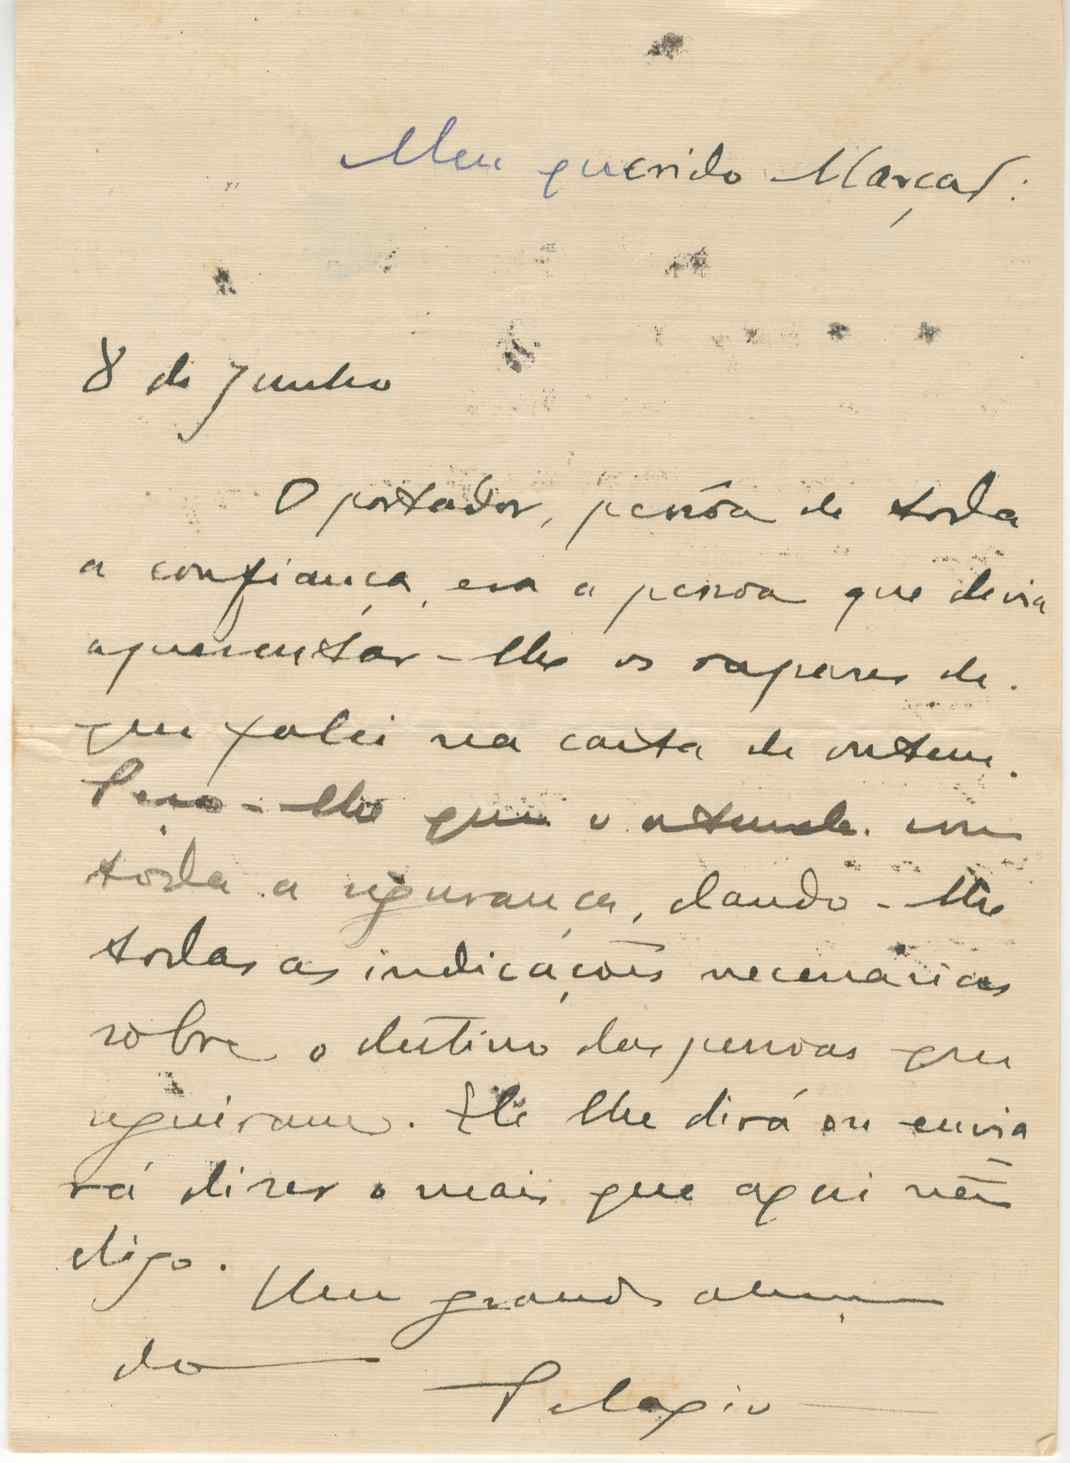 Meu querido Marçal:
8 de Junho
O portador, pessôa de toda
a confiança, era a pessoa que devia
apresentar-lhe os rapazes de
que falei na carta de ontem.
Peço-lhe que o atenda com
toda a segurança, dando-lhe
todas as indicações necessarias
sobre o destino das pessoas que
seguiram. Ele lhe dirá ou envia
rá dizer o mais que aqui não
digo.
Um grande abraço
do
Pelagio